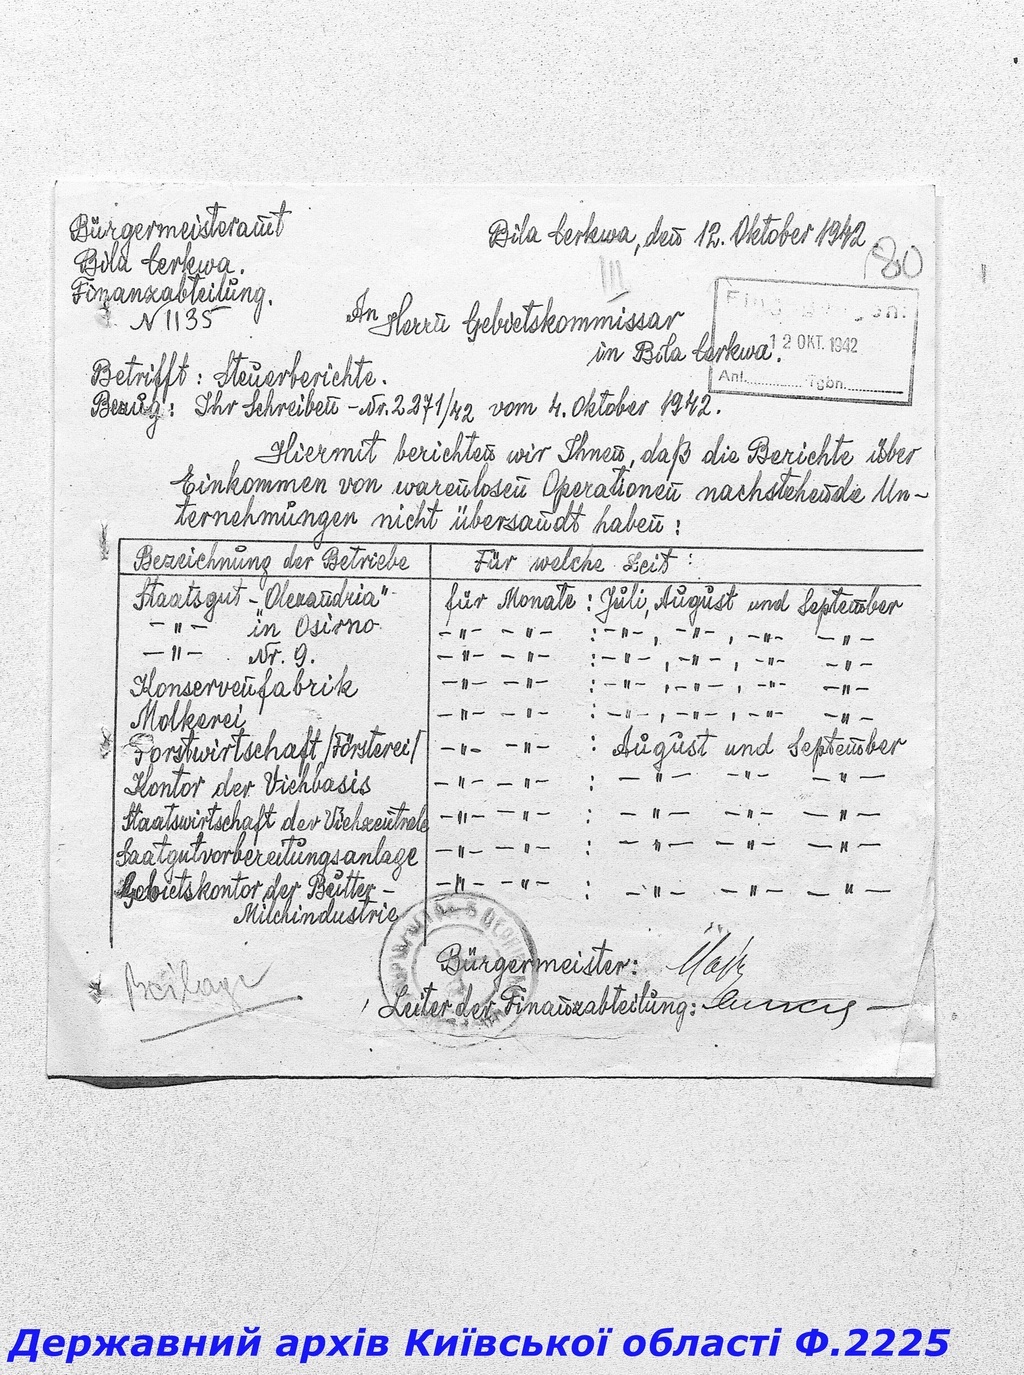 Bürgermeisteramt
Bila Cerkwa.
Finanzabteilung.
N 1135
Bila Cerkwa, den 12. Oktober 1942
180
III
An Herrn Gebietskommissar
in Bila Cerkwa.
Eingegangen:
12 OKT. 1942
Anl. Tgbn.
Betrifft: Steuerberichte.
Bezug: Ihr Schreiben - Nr. 2271/42 vom 4. Oktober 1942.
Hiermit berichten wir Ihnen, daß die Berichte über
Einkommen von warenlosen Operationen nachstehende Un-
ternehmungen nicht übersandt haben:
Bezeichnung der Betriebe Für welche Zeit:
Staatsgut - "Olexandria" für Monate: Juli, August und September
-"- in Osirno -"- -"- : -"-, -"-, -"- -"-
-"- Nr. 9. -"- -"- : -"-, -"-, -"- -"-
Konservenfabrik -"- -"- : -"-, -"-, -"- -"-
Molkerei -"- -"- : -"-, -"-, -"- -"-
Forstwirtschaft /Försterei/ -"- -"- : August und September
Kontor der Viehbasis -"- -"- : -"- -"- -"-
Staatswirtschaft der Viehzentrale -"- -"- : -"- -"- -"-
Saatgutvorbereitungsanlage -"- -"- : -"- -"- -"-
Gebietskontor der Butter- -"- -"- : -"- -"- -"-
Milchindustrie
Bürgermeister:
Leiter der Finanzabteilung:
Beilage
Державний архів Київської області Ф.2225